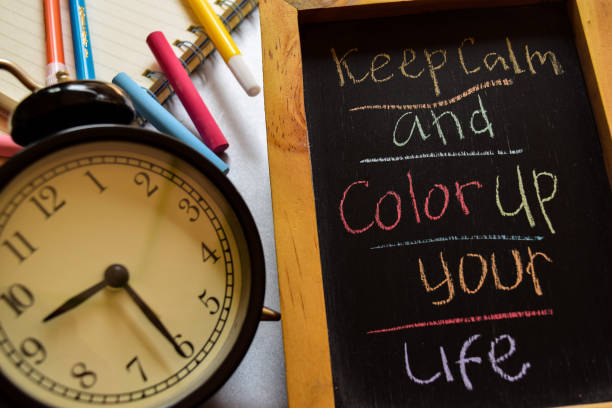 Keep Calm
and
Color Up
your
Life
12
1
2
3
4
5
6
7
8
9
10
11